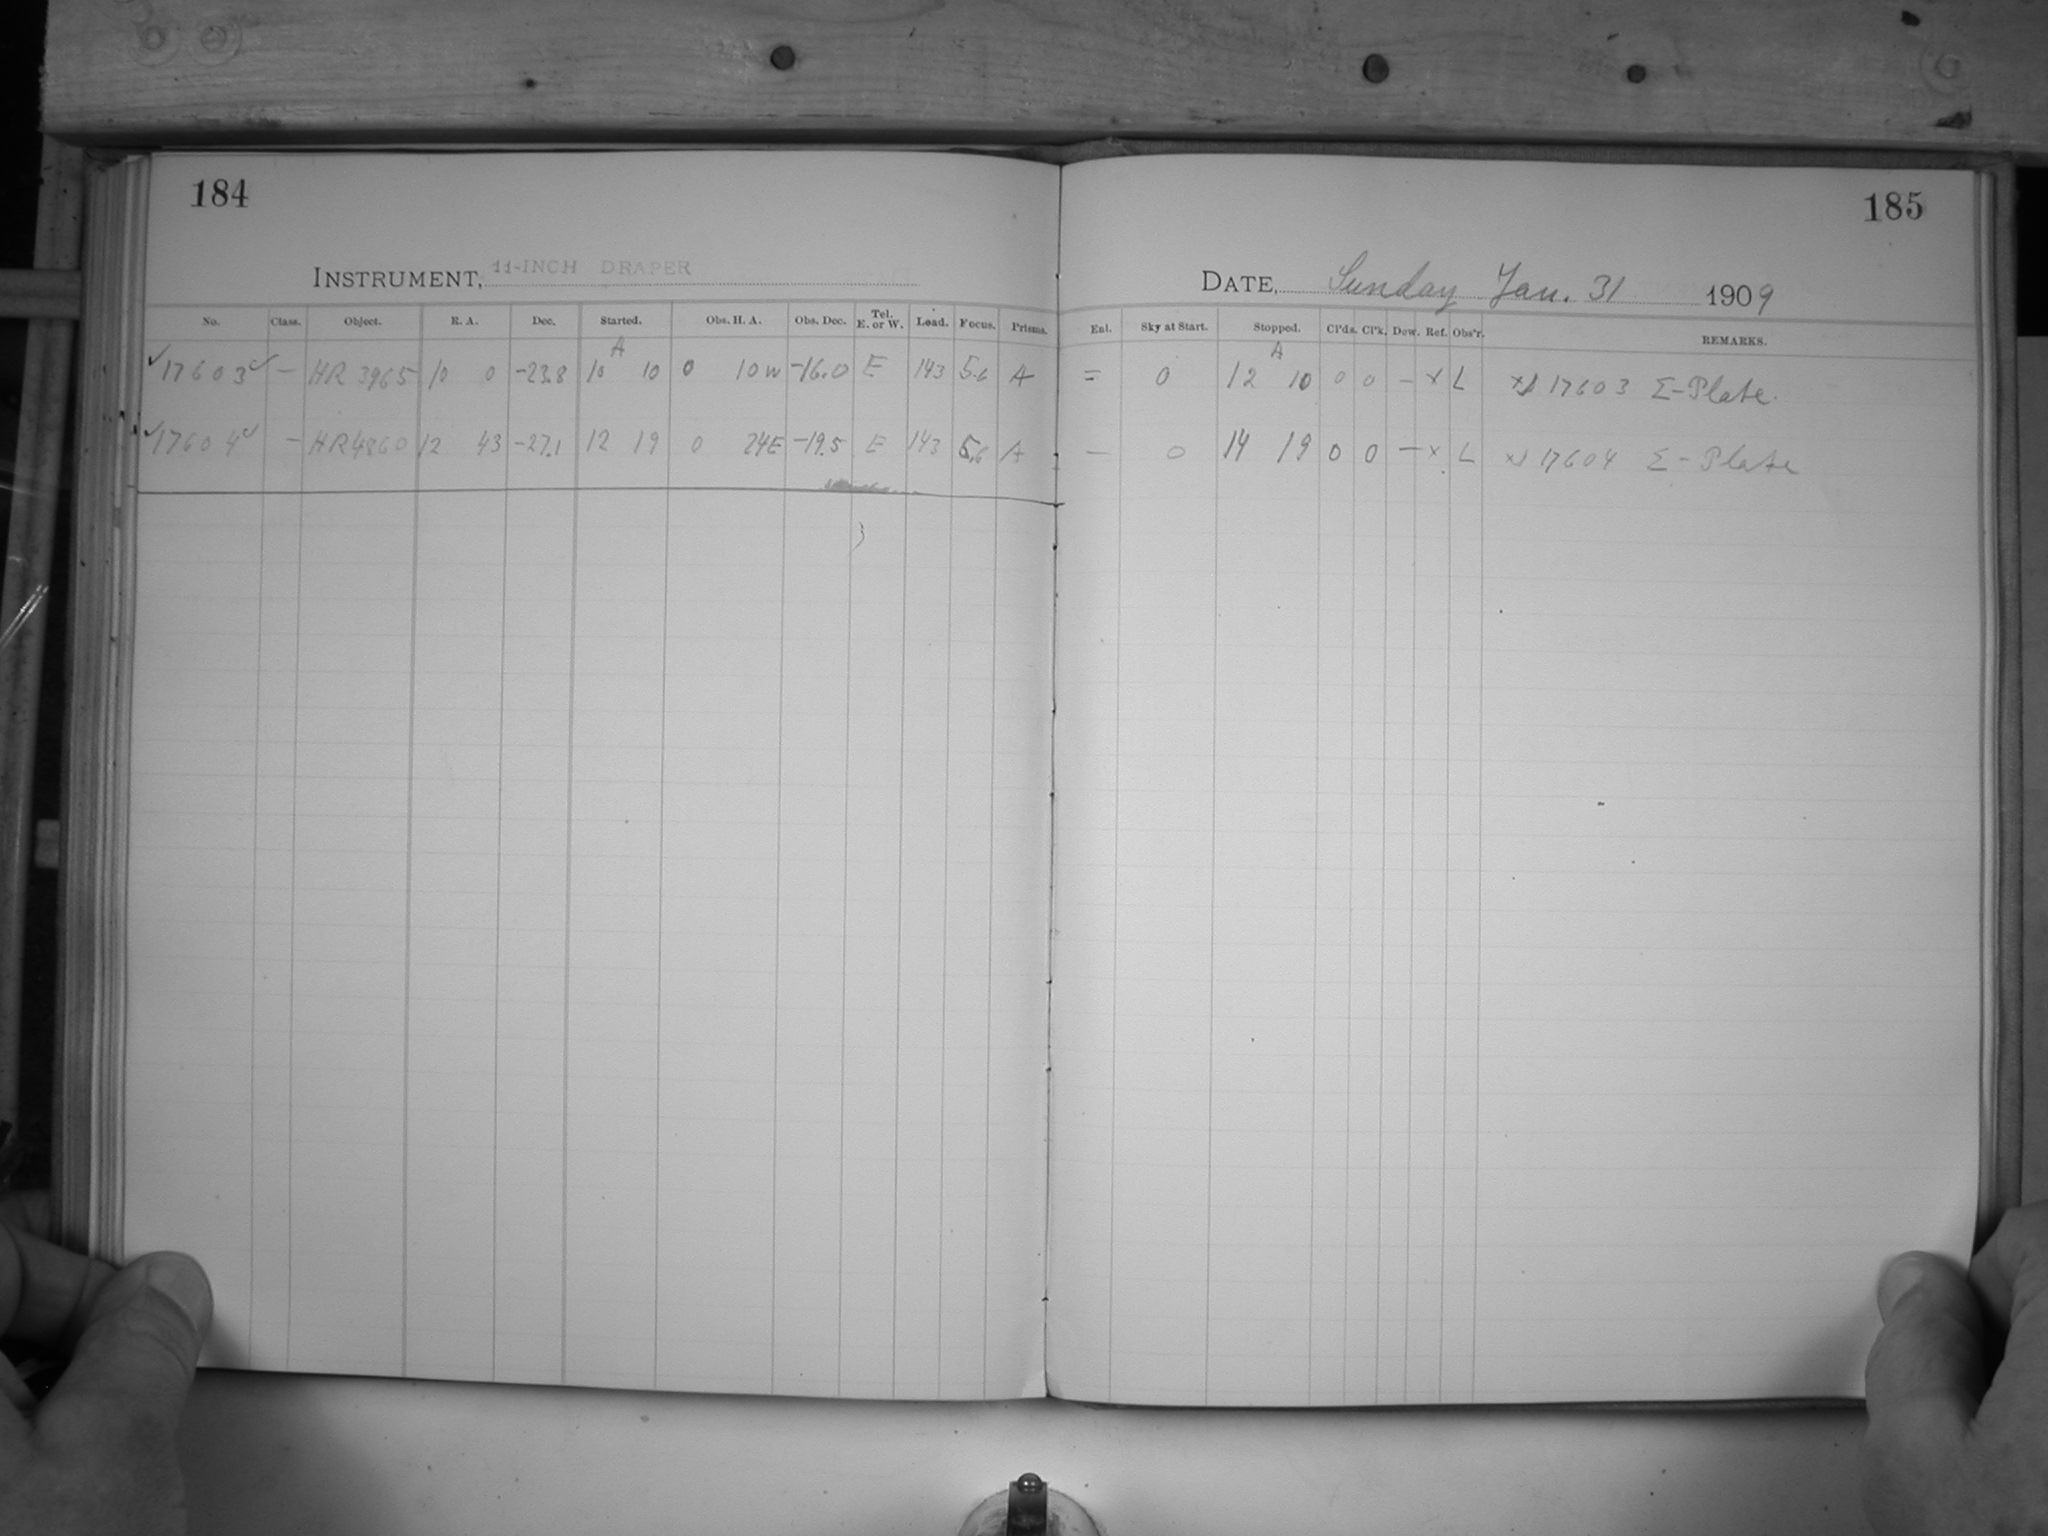 184
INSTRUMENT, 11-INCH DRAPER
No. Class. Object. R. A. Dec. Started. Obs. H. A. Obs. Dec. Tel. E. or W. Lead. Focus. Prisms.
A
✓17603✓ — HR 3965 10 0 -23.8 10 10 0 10 W -16.0 E 143 5.6 A
✓17604✓ — HR 4860 12 43 -27.1 12 19 0 24 E -19.5 E 143 5.6 A
185
DATE, Sunday Jan. 31 1909
Enl. Sky at Start. Stopped. Cl'ds. Cl'k. Dew. Ref. Obs'r. REMARKS.
A
= 0 12 10 0 0 — x L 17603 Σ-Plate.
— 0 14 19 0 0 — x L 17604 Σ-Plate